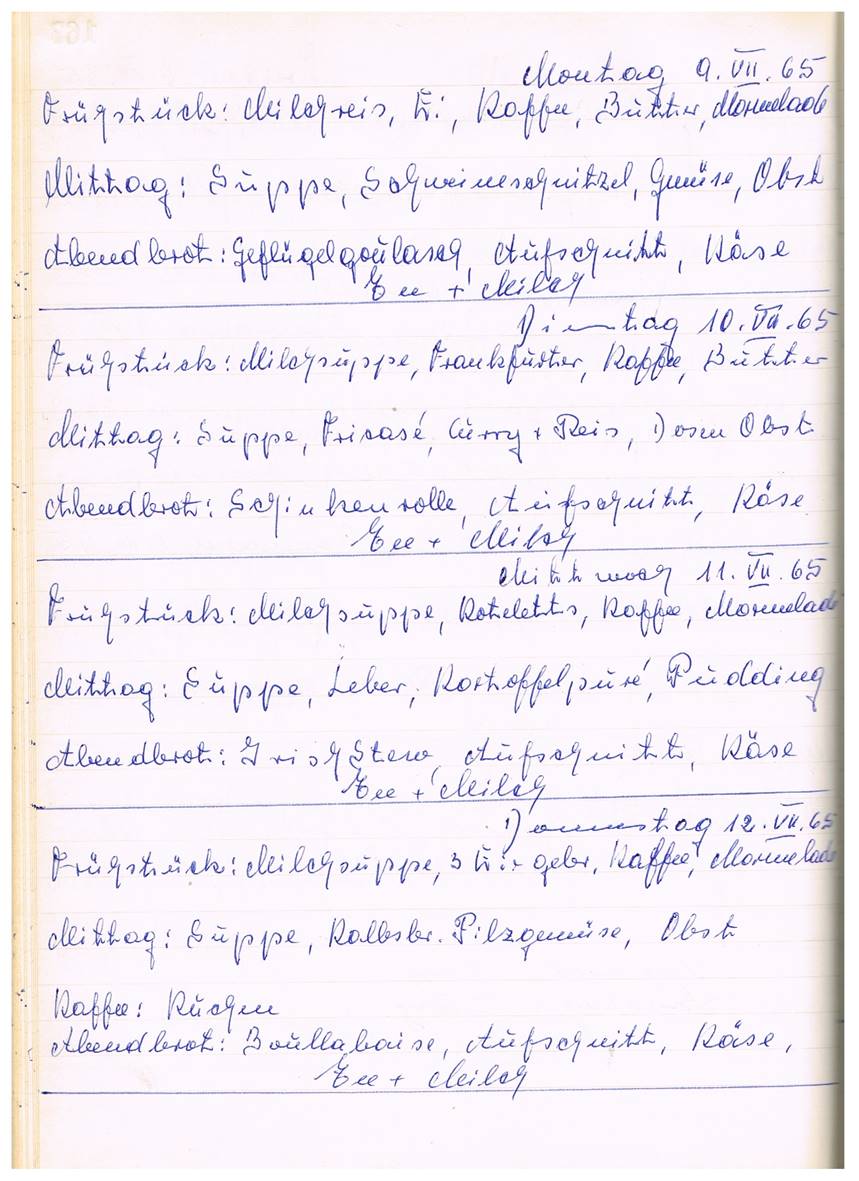 Montag 9. VII. 65
Frühstück: Milchreis, Ei, Kaffee, Butter, Marmelade
Mittag: Suppe, Schweineschnitzel, Gemüse, Obst
Abendbrot: Geflügelgoulasch, Aufschnitt, Käse
Tee + Milch
Dienstag 10. VII. 65
Frühstück: Milchsuppe, Frankfurter, Kaffee, Butter
Mittag: Suppe, Fricasé, Curry + Reis, Dosen Obst
Abendbrot: Schinkenrolle, Aufschnitt, Käse
Tee + Milch
Mittwoch 11. VII. 65
Frühstück: Milchsuppe, Koteletts, Kaffee, Marmelade
Mittag: Suppe, Leber, Kartoffelpuré, Pudding
Abendbrot: Irish Stew, Aufschnitt, Käse
Tee + Milch
Donnerstag 12. VII. 65
Frühstück: Milchsuppe, 3 Eier gebr, Kaffee, Marmelade
Mittag: Suppe, Kalbsbr. Pilzgemüse, Obst
Kaffee: Kuchen
Abendbrot: Boullabaise, Aufschnitt, Käse,
Tee + Milch